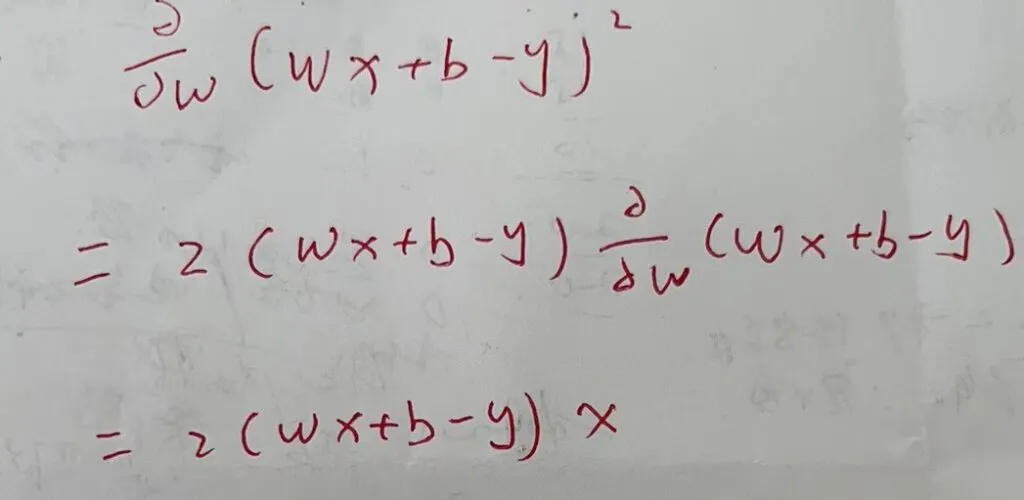 ∂/∂w (wx+b-y)²
= 2 (wx+b-y) ∂/∂w (wx+b-y)
= 2 (wx+b-y) x